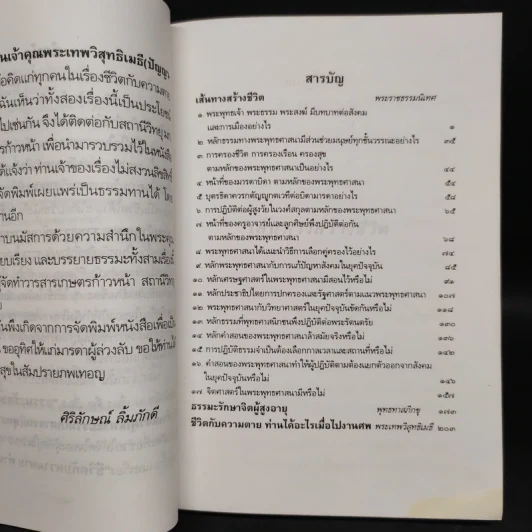 นเจ้าคุณพระเทพวิสุทธิเมธี(ปัญญา
้อคิดแก่ทุกคนในเรื่องชีวิตกับความตาย
ฉันเห็นว่าทั้งสองเรื่องนี้เป็นประโยชน์
ไปเช่นกัน จึงได้ติดต่อกับสถานีวิทยุ มก
รก้าวหน้า เพื่อนำมารวบรวมไว้ในหนังสือ
ด้แจ้งว่า ท่านเจ้าของเรื่องไม่สงวนลิขสิทธิ์
จัดพิมพ์เผยแพร่เป็นธรรมทานได้ โดย
านอีก
าบนมัสการด้วยความสำนึกในพระคุณ
ยบเรียง และบรรยายธรรมะทั้งสามเรื่องนี้
ผู้จัดทำวารสารเกษตรก้าวหน้า สถานีวิทยุ
ันพึงเกิดจากการจัดพิมพ์หนังสือเพื่อเป็น
ขออุทิศให้แก่มารดาผู้ล่วงลับ ขอให้ท่านได้
สุขในสัมปรายภพเทอญ
ศิริลักษณ์ ลิ้มภักดี
สารบัญ
เส้นทางสร้างชีวิต พระราชธรรมนิเทศ
๑ พระพุทธเจ้า พระธรรม พระสงฆ์ มีบทบาทต่อสังคม
และการเมืองอย่างไร ๑
๒ หลักธรรมทางพระพุทธศาสนามีส่วนช่วยมนุษย์ทุกชั้นวรรณะอย่างไร ๓๕
๓ การครองชีวิต การครองเรือน ครองสุข
ตามหลักของพระพุทธศาสนาเป็นอย่างไร ๔๔
๔ หน้าที่ของมารดาบิดา ตามหลักของพระพุทธศาสนา ๕๔
๕ บุตรธิดาควรกตัญญูกตเวทีต่อบิดามารดาอย่างไร ๖๑
๖ การปฏิบัติต่อผู้สูงวัยในวงศ์สกุลตามหลักของพระพุทธศาสนา ๖๕
๗ หน้าที่ของครูอาจารย์และลูกศิษย์พึงปฏิบัติต่อกัน
ตามหลักของพระพุทธศาสนา ๖๘
๘ พระพุทธศาสนาได้แนะนำวิธีการเลือกคู่ครองไว้อย่างไร ๗๔
๙ หลักพระพุทธศาสนากับการแก้ปัญหาสังคมในยุคปัจจุบัน ๘๕
๑๐ หลักเศรษฐศาสตร์ในพระพุทธศาสนามีสอนไว้หรือไม่ ๙๑
๑๑ หลักประชาธิปไตยการปกครองและรัฐศาสตร์ตามแนวพระพุทธศาสนา ๑๐๗
๑๒ พระพุทธศาสนากับวิทยาศาสตร์ในยุคปัจจุบันขัดกันหรือไม่ ๑๑๘
๑๓ หลักธรรมที่พุทธศาสนิกชนพึงปฏิบัติต่อพระรัตนตรัย ๑๓๐
๑๔ หลักคำสอนของพระพุทธศาสนาล้าสมัยจริงหรือไม่ ๑๓๖
๑๕ การปฏิบัติธรรมจำเป็นต้องเลือกกาลเวลาและสถานที่หรือไม่ ๑๔๒
๑๖ คำสอนของพระพุทธศาสนาทำให้ผู้ปฏิบัติตามต้องแยกตัวออกจากสังคม
ในยุคปัจจุบันหรือไม่ ๑๔๖
๑๗ จิตศาสตร์ในพระพุทธศาสนามีหรือไม่ ๑๕๗
ธรรมะรักษาจิตผู้สูงอายุ พุทธทาสภิกขุ ๑๗๓
ชีวิตกับความตาย ท่านได้อะไรเมื่อไปงานศพ พระเทพวิสุทธิเมธี ๒๐๓